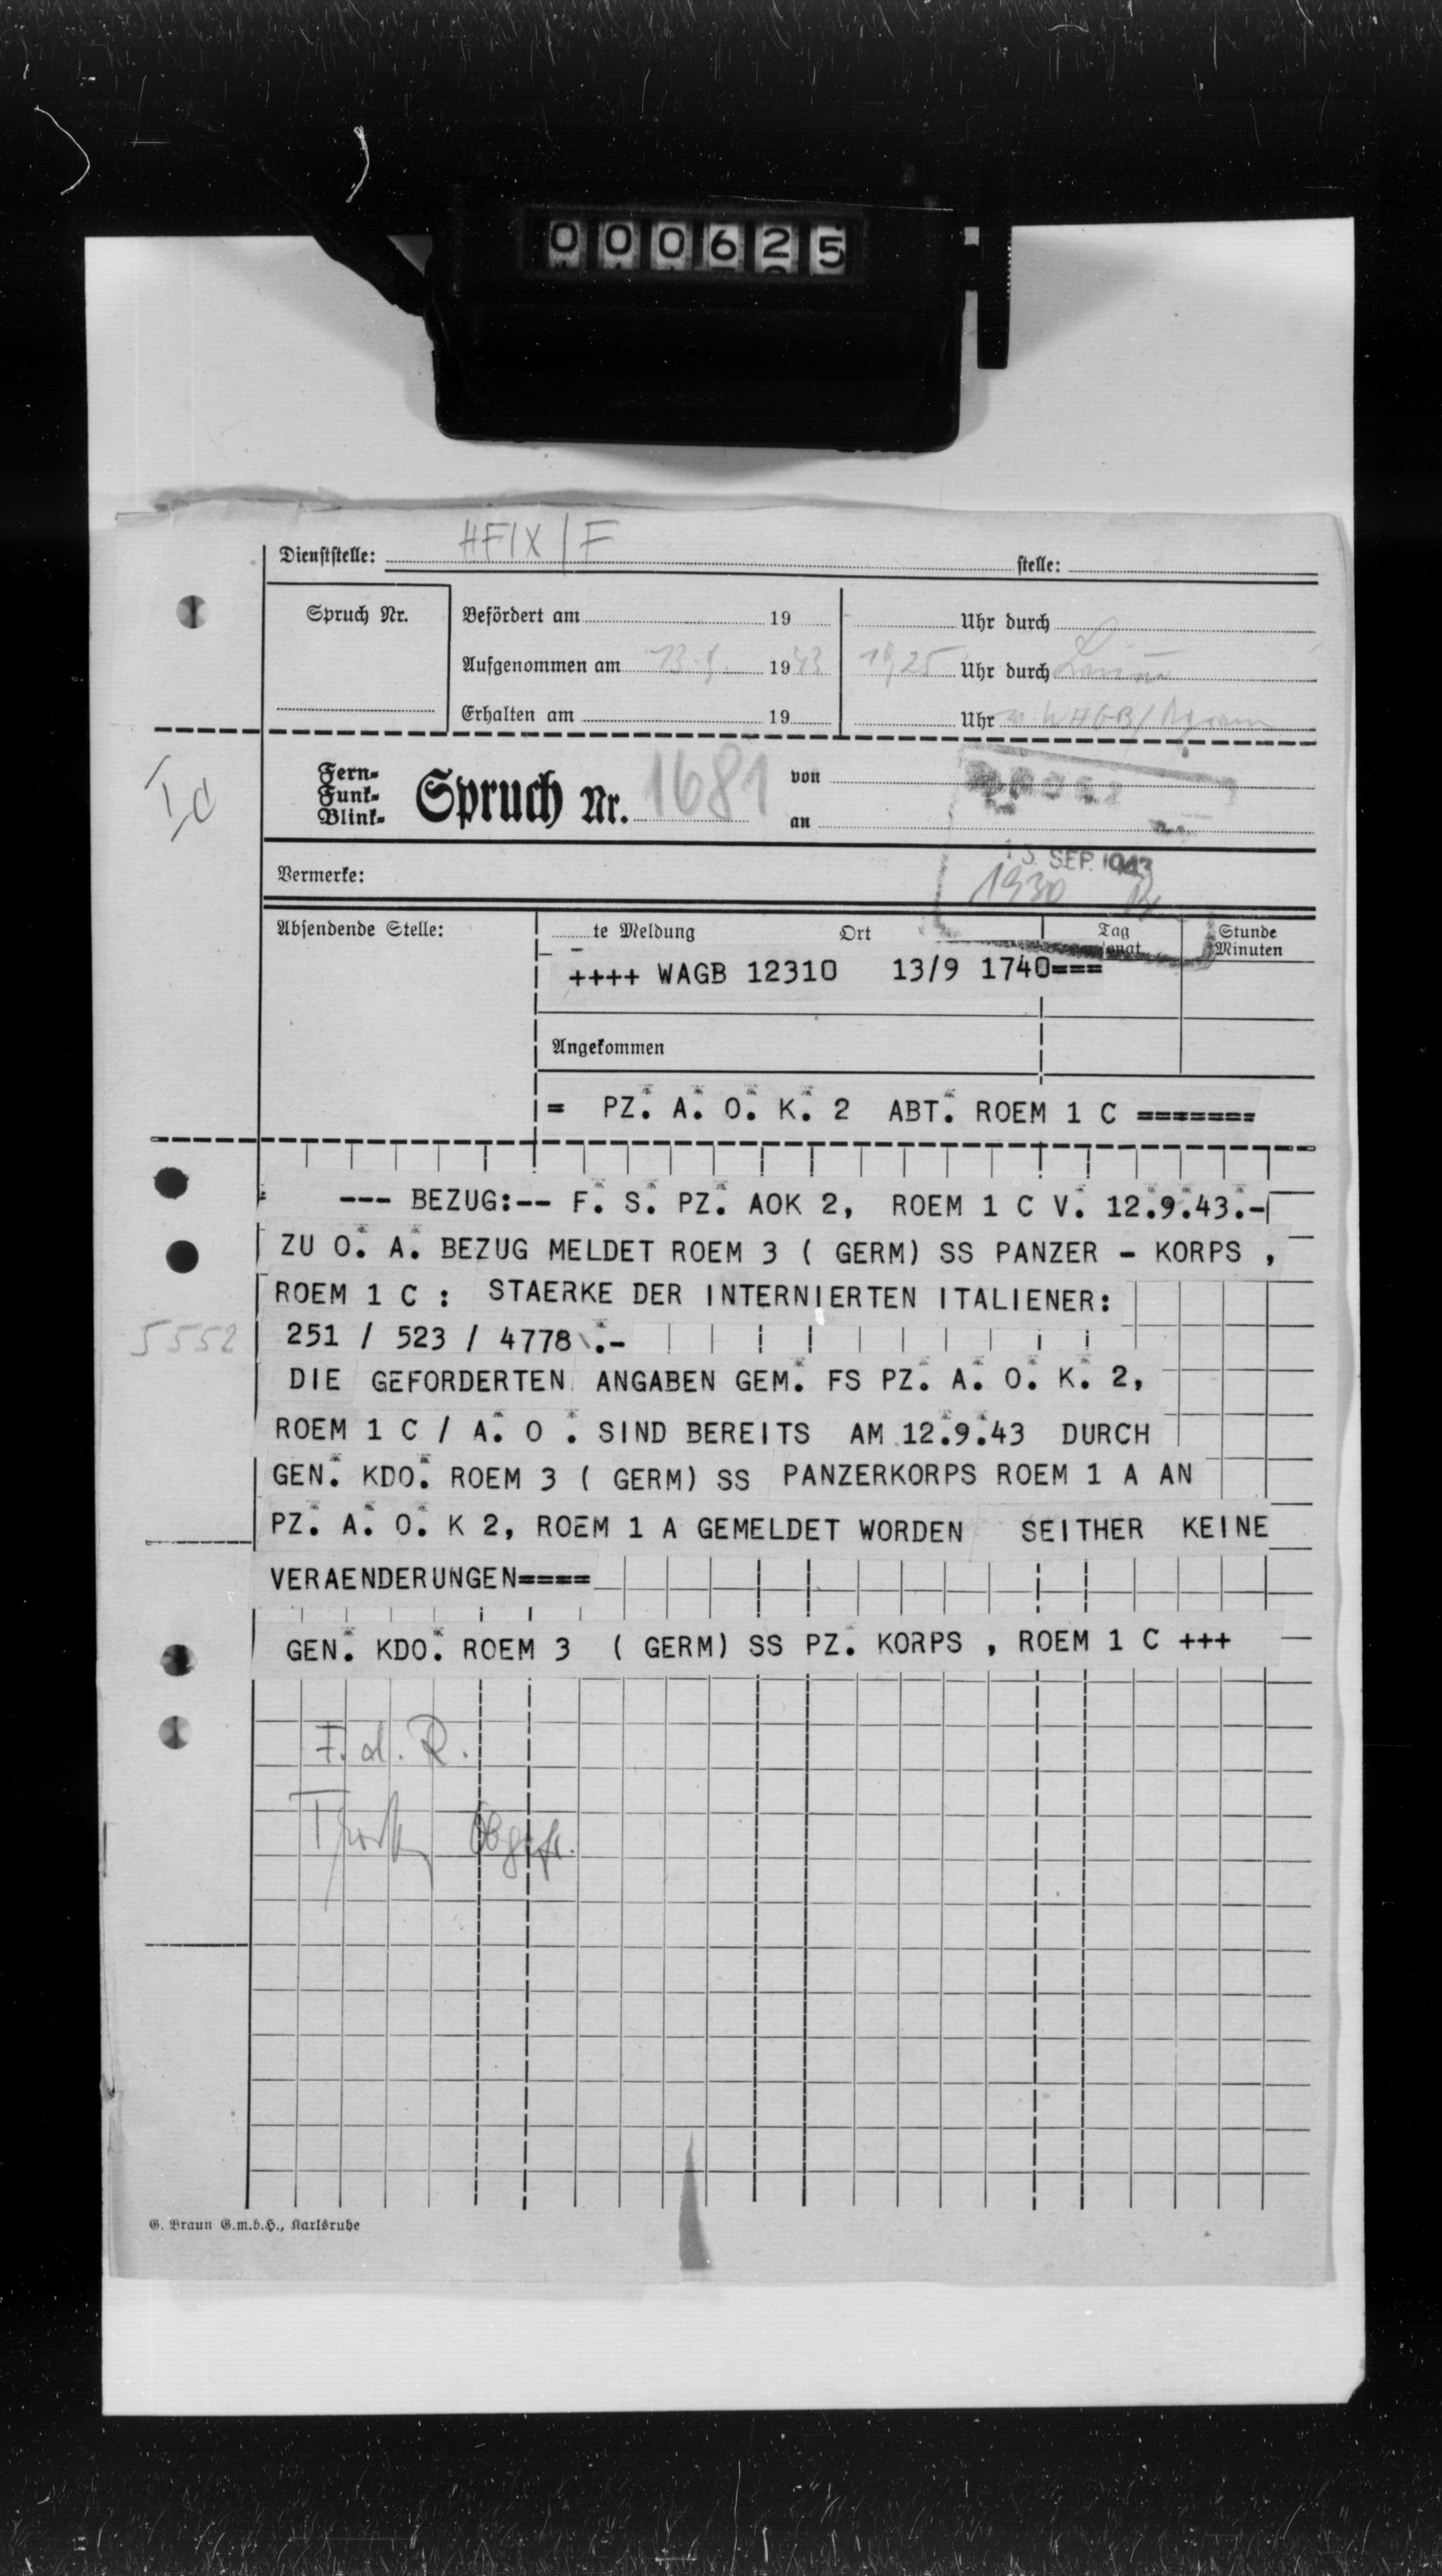 000625
HFIX/F
Dienststelle: stelle:
Spruch Nr.
Befördert am 19 Uhr durch
Aufgenommen am 13.9. 1943 1925 Uhr durch
Erhalten am 19 Uhr
Ic
Fern-
Funk-
Blink-
Spruch Nr. 1681
von
an
13. SEP. 1943
1930
Vermerke:
Absendende Stelle:
te Meldung Ort Tag Stunde
Monat Minuten
++++ WAGB 12310 13/9 1740===
Angekommen
= PZ. A. O. K. 2 ABT. ROEM 1 C =======
--- BEZUG:-- F. S. PZ. AOK 2, ROEM 1 C V. 12.9.43.-
ZU O. A. BEZUG MELDET ROEM 3 ( GERM) SS PANZER - KORPS ,
ROEM 1 C : STAERKE DER INTERNIERTEN ITALIENER:
5552
251 / 523 / 4778 .-
DIE GEFORDERTEN ANGABEN GEM. FS PZ. A. O. K. 2,
ROEM 1 C / A. O . SIND BEREITS AM 12.9.43 DURCH
GEN. KDO. ROEM 3 ( GERM) SS PANZERKORPS ROEM 1 A AN
PZ. A. O. K 2, ROEM 1 A GEMELDET WORDEN SEITHER KEINE
VERAENDERUNGEN====
GEN. KDO. ROEM 3 ( GERM) SS PZ. KORPS , ROEM 1 C +++
F. d. R.
Obgefr.
G. Braun G.m.b.H., Karlsruhe